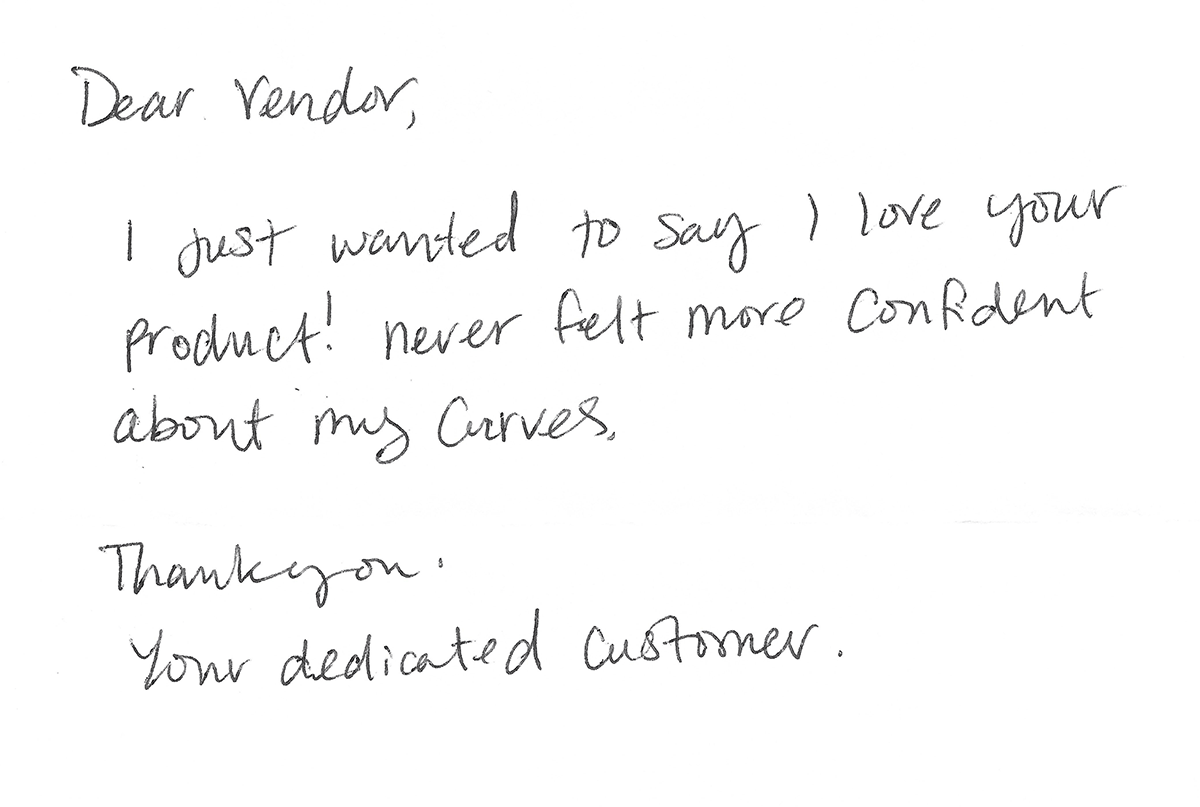 Dear Vendor,
I just wanted to say I love your
product! never felt more confident
about my curves.
Thankyou.
Your dedicated customer.